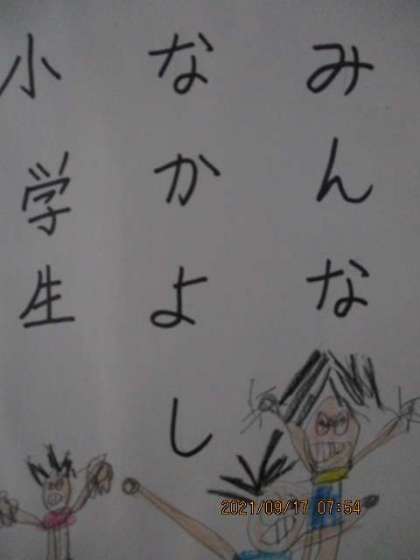 みんな
なかよし
小学生
2021/09/17 07:54